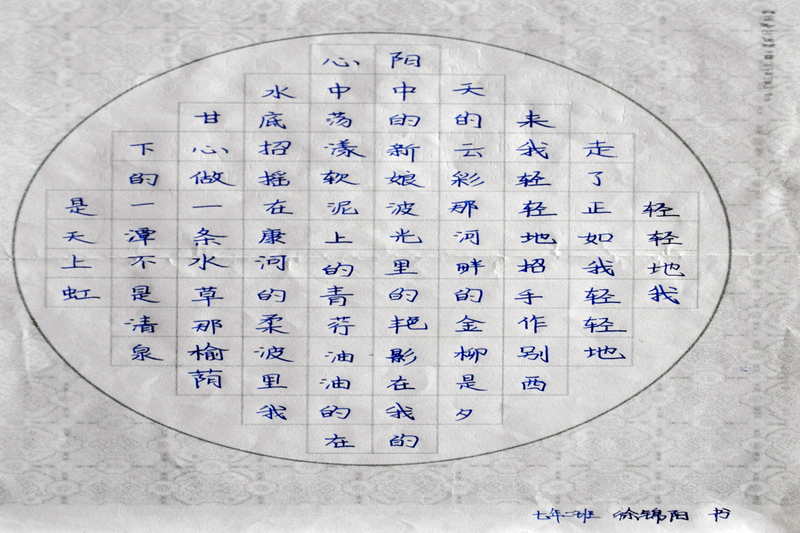 轻轻地我
走了正如我轻轻地
来我轻轻地招手作别西
天的云彩那河畔的金柳是夕
阳中的新娘波光里的艳影在我的
心中荡漾软泥上的青荇油油的在
水底招摇在康河的柔波里我
甘心做一条水草那榆荫
下的一潭不是清泉
是天上虹
七年二班 徐锦阳 书